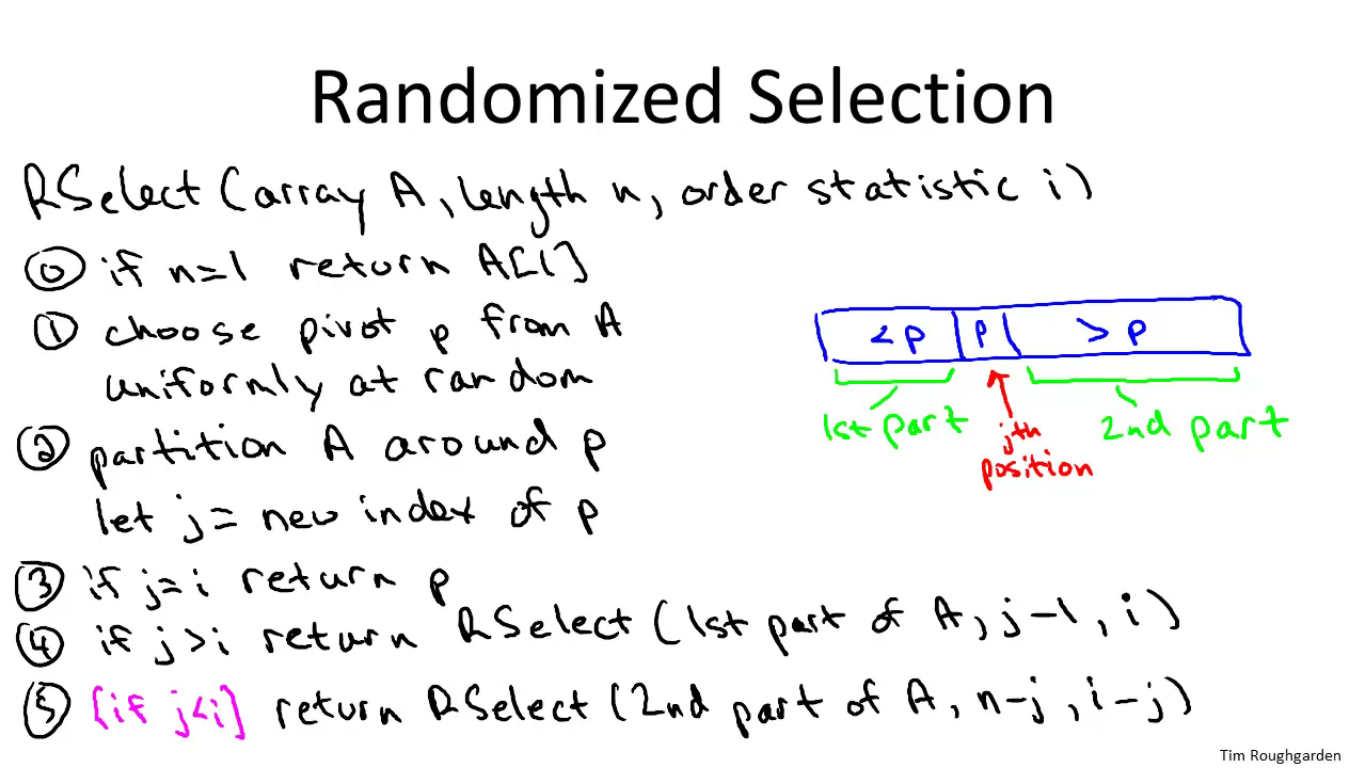 Randomized Selection
RSelect (array A, length n, order statistic i)
⓪ if n=1 return A[1]
① choose pivot p from A
uniformly at random
② partition A around p
let j = new index of p
③ if j=i return p
④ if j>i return RSelect (1st part of A, j-1, i)
⑤ [if j<i] return RSelect (2nd part of A, n-j, i-j)
<p p >p
1st part
jth
position
2nd part
Tim Roughgarden